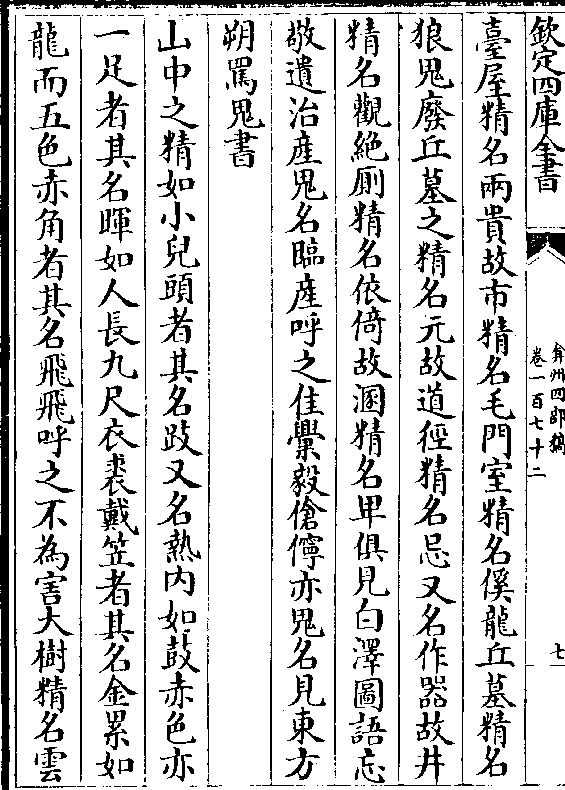 欽定四庫全書
弇州四部稿
卷一百七十二
七
臺屋精名兩貴故市精名毛門室精名傒龍丘墓精名
狼鬼廢丘墓之精名元故道徑精名忌又名作器故井
精名觀絶厠精名依倚故溷精名卑俱見白澤圖語忘
敬遺治産鬼名臨産呼之佳㶅毅傖儜亦鬼名見東方
朔罵鬼書
山中之精如小兒頭者其名跂又名熱内如鼓赤色亦
一足者其名暉如人長九尺衣裘戴笠者其名金累如
龍而五色赤角者其名飛飛呼之不為害大樹精名雲